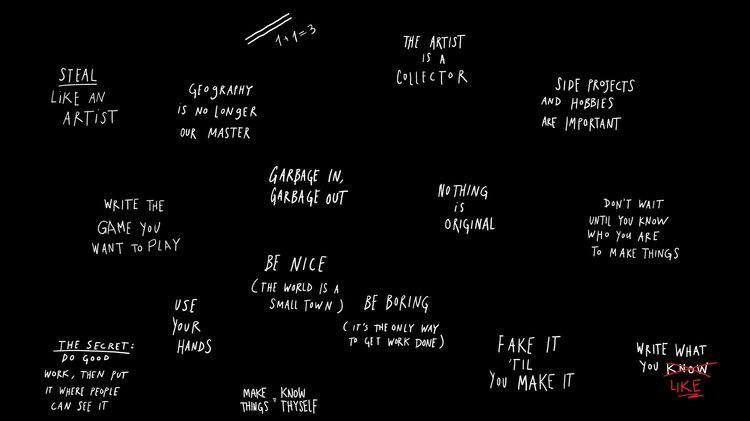 1+1=3
THE ARTIST
IS A
COLLECTOR
STEAL
LIKE AN
ARTIST
GEOGRAPHY
IS NO LONGER
OUR MASTER
SIDE PROJECTS
AND HOBBIES
ARE IMPORTANT
GARBAGE IN,
GARBAGE OUT
NOTHING
IS
ORIGINAL
WRITE THE
GAME YOU
WANT TO PLAY
DON'T WAIT
UNTIL YOU KNOW
WHO YOU ARE
TO MAKE THINGS
BE NICE
(THE WORLD IS A
SMALL TOWN)
BE BORING
(IT'S THE ONLY WAY
TO GET WORK DONE)
USE
YOUR
HANDS
THE SECRET:
DO GOOD
WORK, THEN PUT
IT WHERE PEOPLE
CAN SEE IT
MAKE THINGS = KNOW THYSELF
FAKE IT
'TIL
YOU MAKE IT
WRITE WHAT
YOU KNOW
LIKE